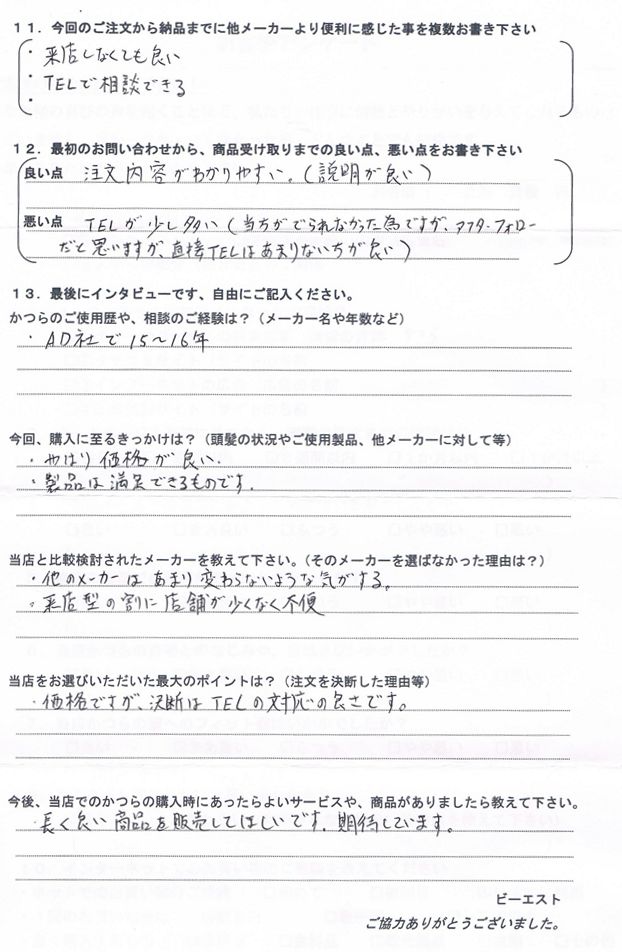 11．今回のご注文から納品までに他メーカーより便利に感じた事を複数お書き下さい
・来店しなくても良い
・TELで相談できる
12．最初のお問い合わせから、商品受け取りまでの良い点、悪い点をお書き下さい
良い点　注文内容がわかりやすい。(説明が良い)
悪い点　TELが少し多い(当ちがでられなかった為ですが、アフターフォロー
だと思いますが、直接TELはあまりないちが良い)
13．最後にインタビューです、自由にご記入ください。
かつらのご使用歴や、相談のご経験は？（メーカー名や年数など）
・AD社で15～16年
今回、購入に至るきっかけは？（頭髪の状況やご使用製品、他メーカーに対して等）
・やはり価格が良い．
・製品は満足できるものです．
当店と比較検討されたメーカーを教えて下さい。（そのメーカーを選ばなかった理由は？）
・他のメーカーはあまり変わらないような気がする。
・来店型の割に店舗が少くなく不便
当店をお選びいただいた最大のポイントは？（注文を決断した理由等）
・価格ですが、決断はTELの対応の良さです。
今後、当店でのかつらの購入時にあったらよいサービスや、商品がありましたら教えて下さい。
・長く良い商品を販売してほしいです．期待しています。
ビーエスト
ご協力ありがとうございました。